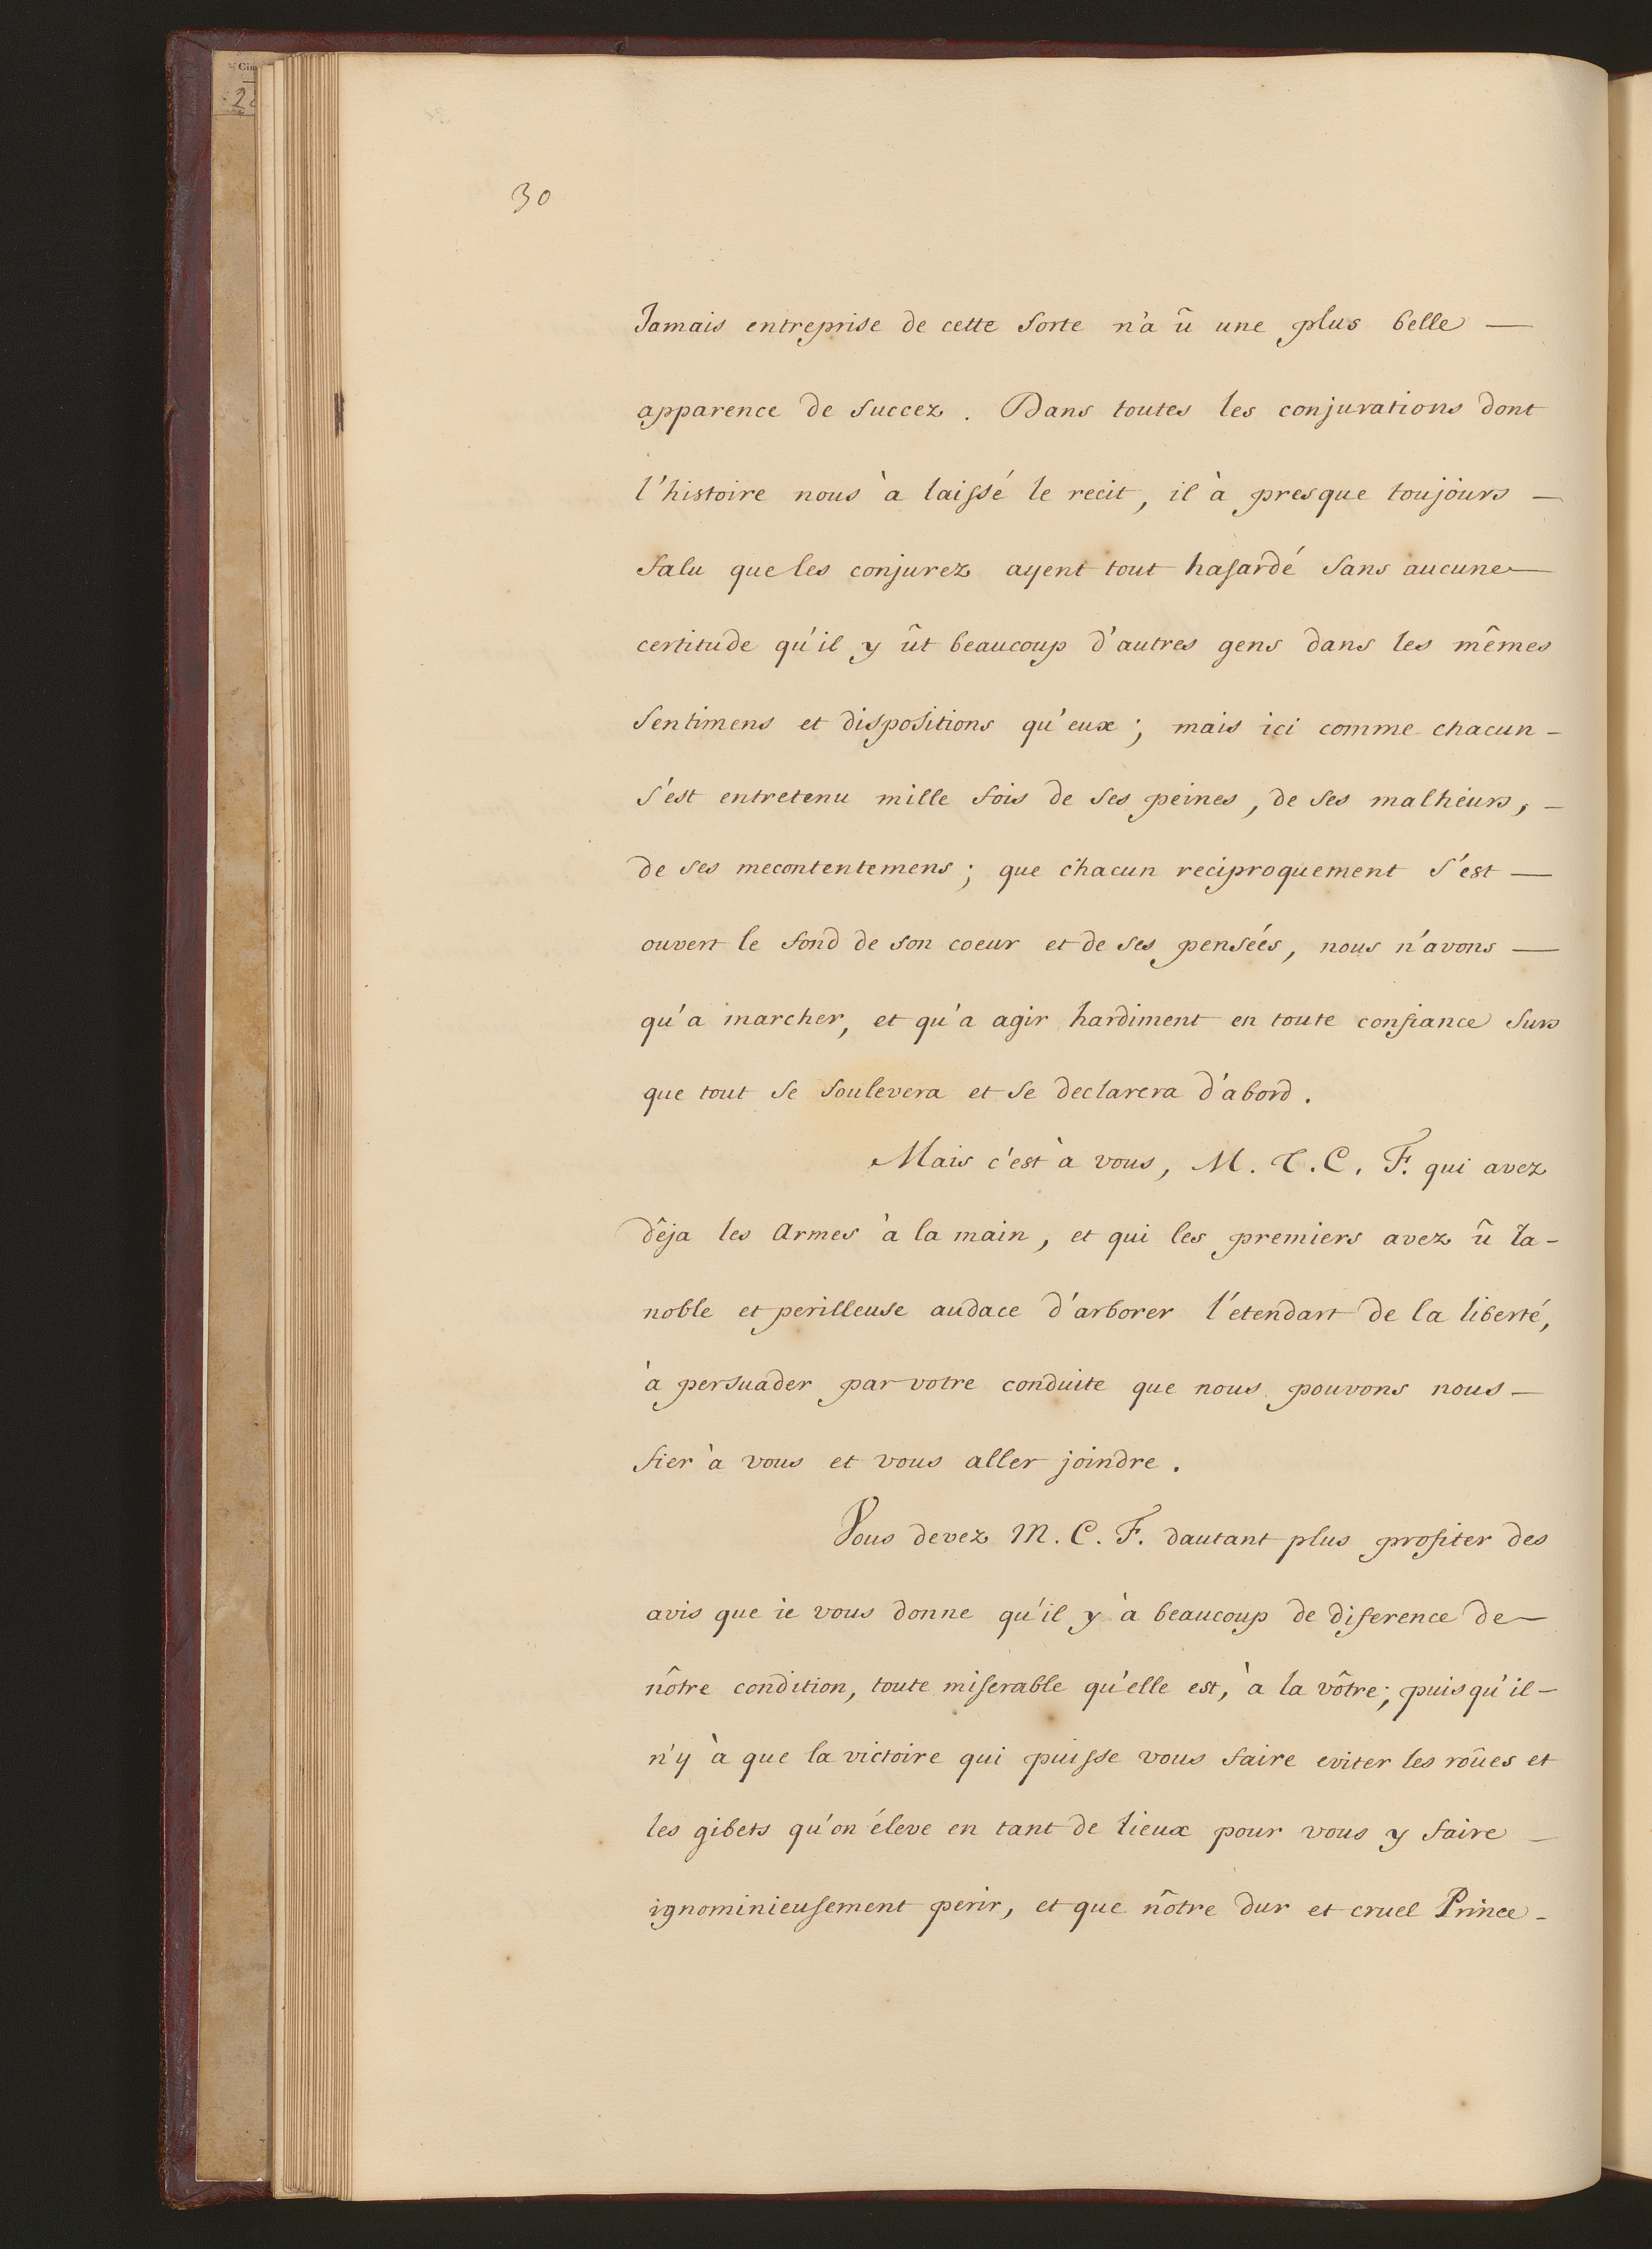 Cim
2
30
Jamais entreprise de cette sorte n'a û une plus belle —
apparence de succez. Dans toutes les conjurations dont
l'histoire nous à laissé le recit, il à presque toujours —
falu que les conjurez ayent tout hasardé sans aucune —
certitude qu'il y ût beaucoup d'autres gens dans les mêmes
sentimens et dispositions qu'eux; mais ici comme chacun -
s'est entretenu mille fois de ses peines, de ses malheurs, -
de ses mecontentemens; que chacun reciproquement s'est —
ouvert le fond de son coeur et de ses pensées, nous n'avons —
qu'a marcher, et qu'a agir hardiment en toute confiance surs
que tout se soulevera et se declarera d'abord.
Mais c'est à vous, M. T. C. F. qui avez
dêja les armes à la main, et qui les premiers avez û la -
noble et perilleuse audace d'arborer l'etendart de la liberté,
à persuader par votre conduite que nous pouvons nous —
fier à vous et vous aller joindre.
Vous devez M. C. F. dautant plus profiter des
avis que ie vous donne qu'il y à beaucoup de diference de —
nôtre condition, toute miserable qu'elle est, à la vôtre; puisqu'il —
n'y à que la victoire qui puisse vous faire eviter les roûes et
les gibets qu'on éleve en tant de lieux pour vous y faire —
ignominieusement perir, et que nôtre dur et cruel Prince -